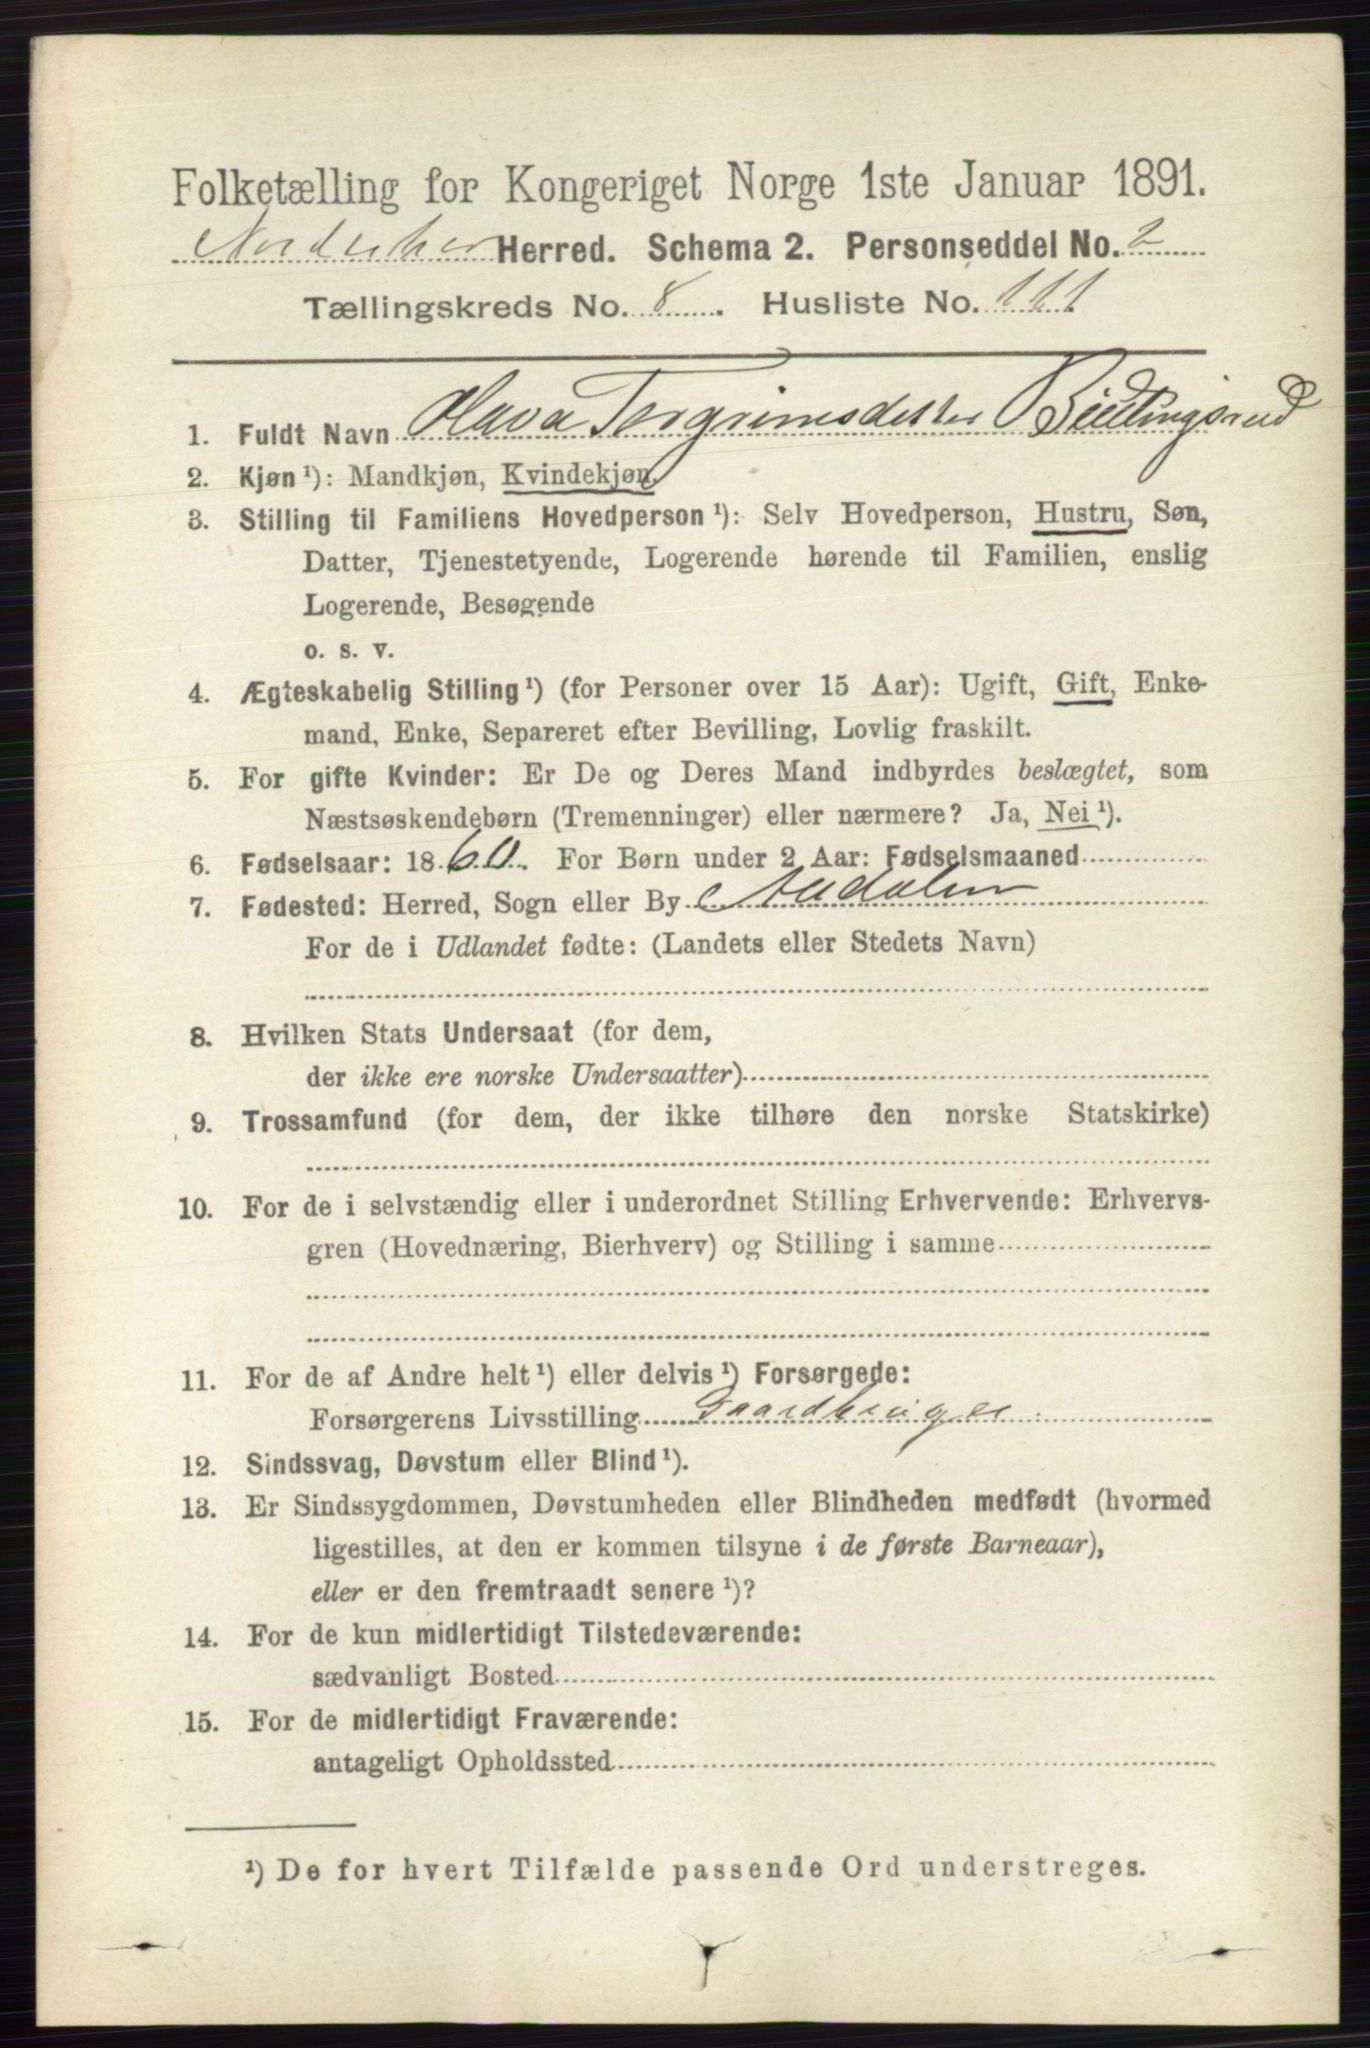 Folketælling for Kongeriget Norge 1ste Januar 1891.
Norderhov Herred. Schema 2. Personseddel No. 2
Tællingskreds No. 8. Husliste No. 111
1. Fuldt Navn Olava Torgrimsdatter
2. Kjøn ¹): Mandkjøn, Kvindekjøn.
3. Stilling til Familiens Hovedperson ¹): Selv Hovedperson, Hustru, Søn,
Datter, Tjenestetyende, Logerende hørende til Familien, enslig
Logerende, Besøgende
o. s. v.
4. Ægteskabelig Stilling ¹) (for Personer over 15 Aar): Ugift, Gift, Enke-
mand, Enke, Separeret efter Bevilling, Lovlig fraskilt.
5. For gifte Kvinder: Er De og Deres Mand indbyrdes beslægtet, som
Næstsøskendebørn (Tremenninger) eller nærmere? Ja, Nei ¹).
6. Fødselsaar: 1860. For Børn under 2 Aar: Fødselsmaaned
7. Fødested: Herred, Sogn eller By Aadalen
For de i Udlandet fødte: (Landets eller Stedets Navn)
8. Hvilken Stats Undersaat (for dem,
der ikke ere norske Undersaatter)
9. Trossamfund (for dem, der ikke tilhøre den norske Statskirke)
10. For de i selvstændig eller i underordnet Stilling Erhvervende: Erhvervs-
gren (Hovednæring, Bierhverv) og Stilling i samme
11. For de af Andre helt ¹) eller delvis ¹) Forsørgede:
Forsørgerens Livsstilling Gaardbruger
12. Sindssvag, Døvstum eller Blind ¹).
13. Er Sindssygdommen, Døvstumheden eller Blindheden medfødt (hvormed
ligestilles, at den er kommen tilsyne i de første Barneaar),
eller er den fremtraadt senere ¹)?
14. For de kun midlertidigt Tilstedeværende:
sædvanligt Bosted
15. For de midlertidigt Fraværende:
antageligt Opholdssted
¹) De for hvert Tilfælde passende Ord understreges.